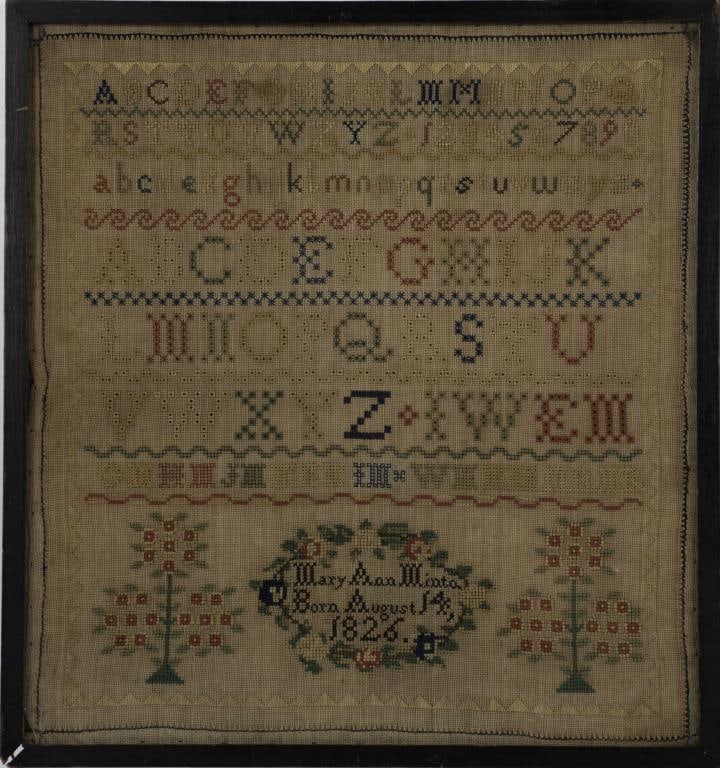 A B C D E F G H I J K L M M N O P Q
R S T U V W X Y Z 1 2 3 4 5 6 7 8 9
a b c d e f g h i j k l m n o p q r s t u v w x y z
A B C D E F G H I J K
L M N O P Q R S T U
V W X Y Z I W E M
M M J M I M W M
Mary Ann Minto,
Born August 14th,
1826.